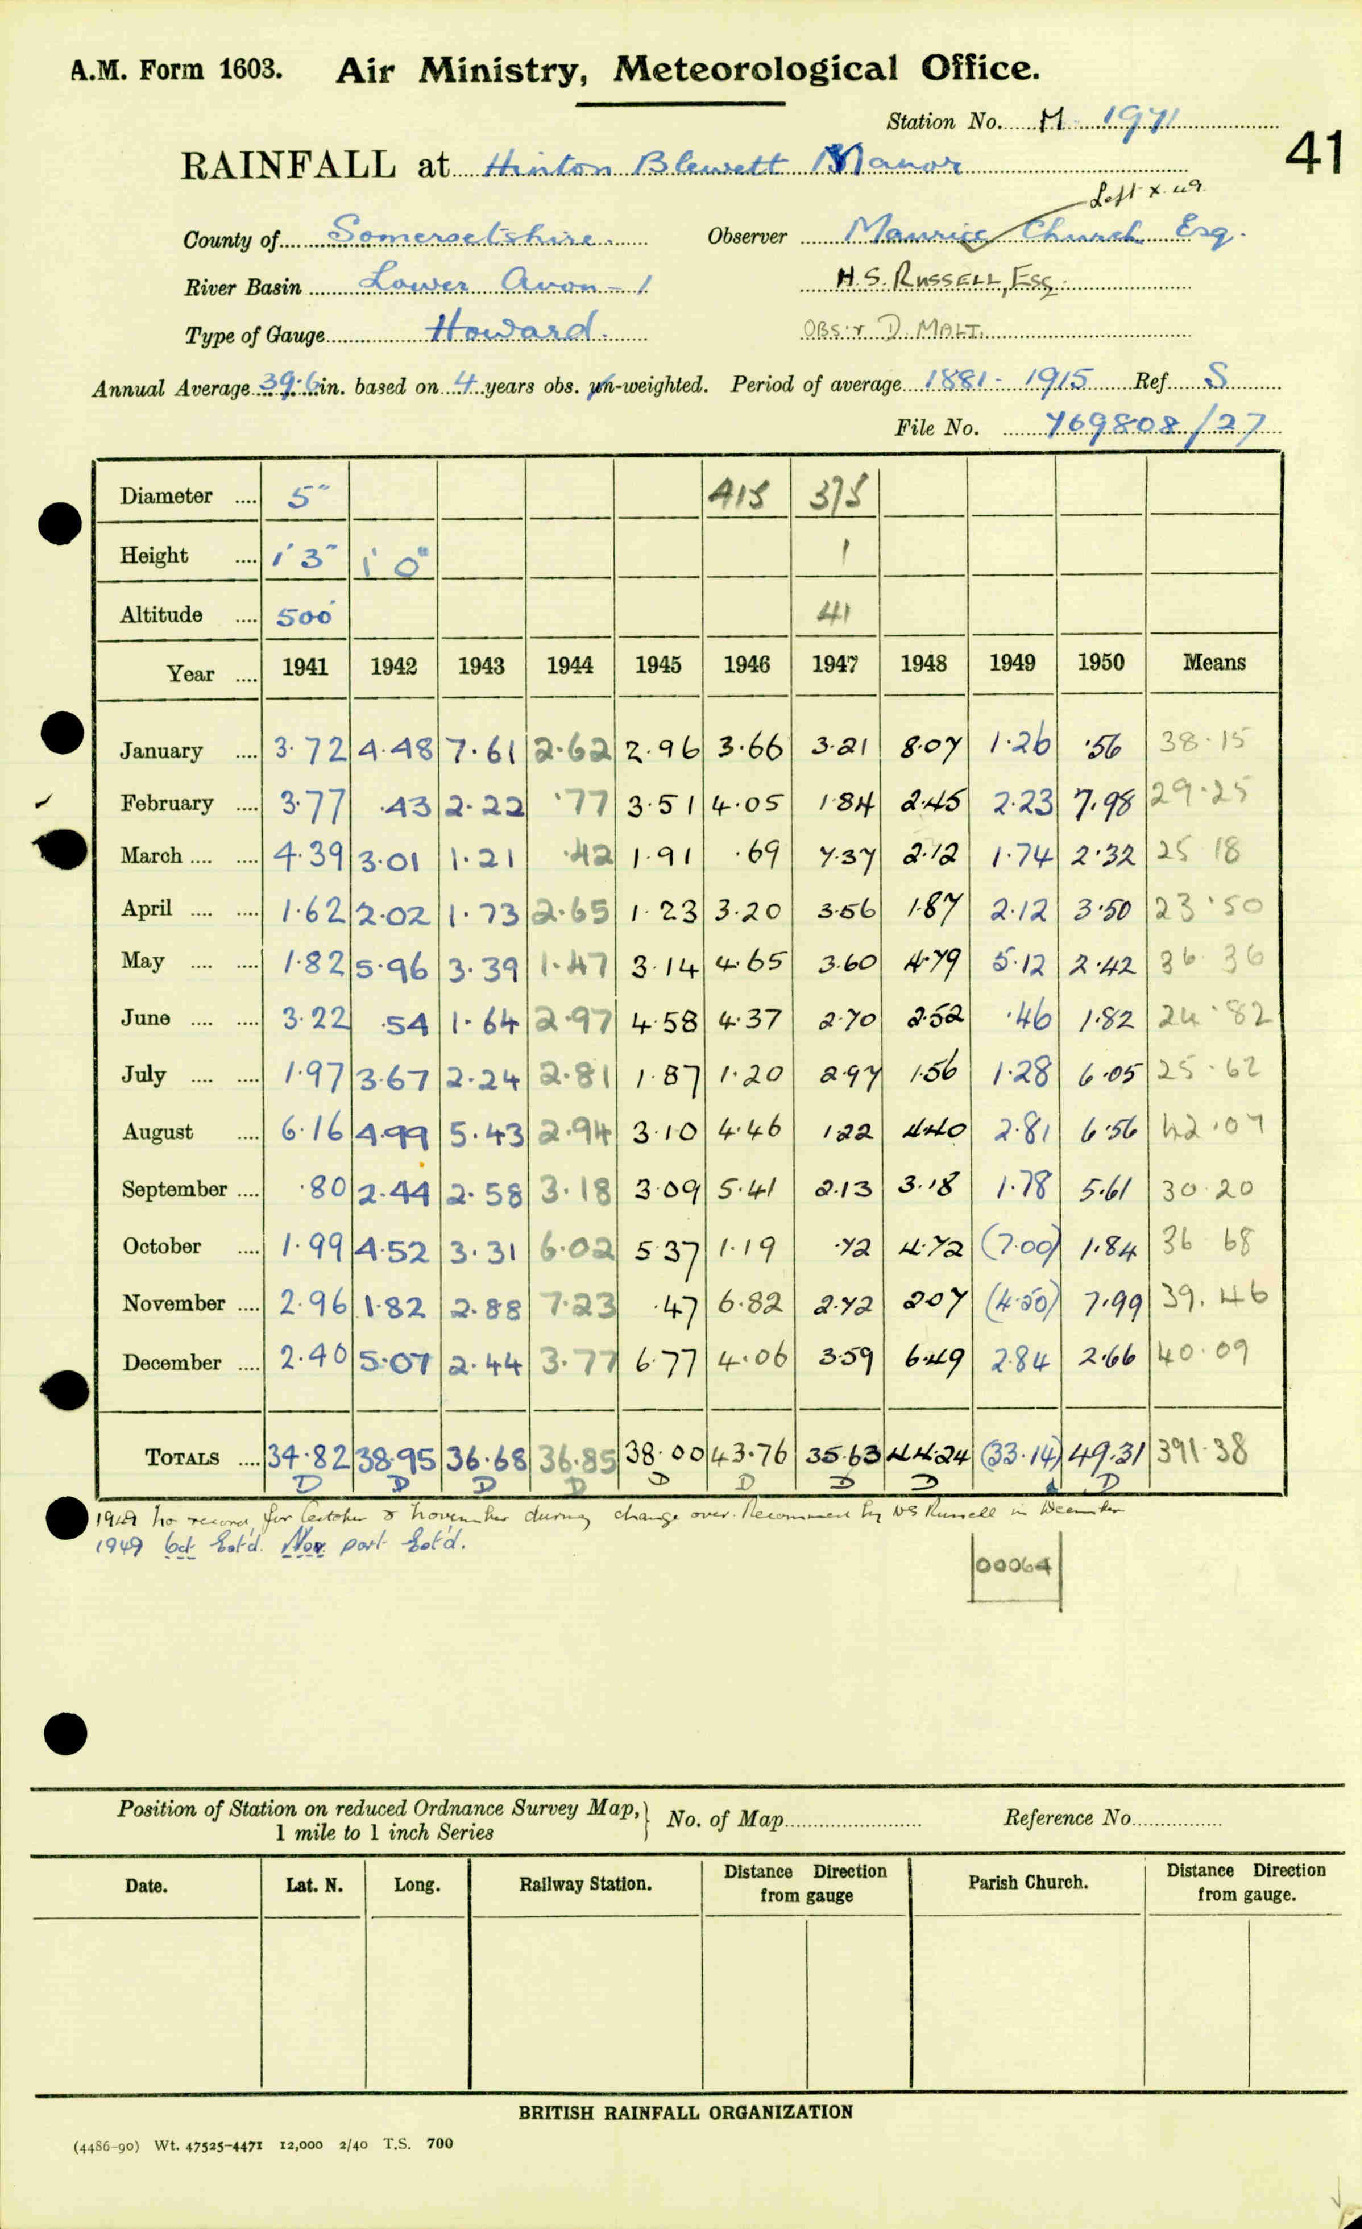 A.M. Form 1603. Air Ministry, Meteorological Office.
Station No. M 1971
41
RAINFALL at Hinton Blewett Manor
Left x.49
County of Somersetshire. Observer Maurice Church Esq.
River Basin Lower Avon - 1 H.S. RUSSELL, ESQ.
Type of Gauge Howard. OBS:r D. MALT.
Annual Average 39.6 in. based on 4 years obs. un-weighted. Period of average 1881 - 1915 Ref. S
File No. 769808/27
Diameter .... 5" 415 375
Height .... 1' 3" 1' 0" 1
Altitude .... 500' 41
Year .... 1941 1942 1943 1944 1945 1946 1947 1948 1949 1950 Means
January .... 3.72 4.48 7.61 2.62 2.96 3.66 3.21 8.07 1.26 .56 38.15
February .... 3.77 .43 2.22 .77 3.51 4.05 1.84 2.45 2.23 7.98 29.25
March .... .... 4.39 3.01 1.21 .42 1.91 .69 7.37 2.12 1.74 2.32 25 18
April .... .... 1.62 2.02 1.73 2.65 1.23 3.20 3.56 1.87 2.12 3.50 23.50
May .... .... 1.82 5.96 3.39 1.47 3.14 4.65 3.60 4.79 5.12 2.42 36.36
June .... .... 3.22 .54 1.64 2.97 4.58 4.37 2.70 2.52 .46 1.82 24.82
July .... .... 1.97 3.67 2.24 2.81 1.87 1.20 2.97 1.56 1.28 6.05 25.62
August .... 6.16 4.99 5.43 2.94 3.10 4.46 1.22 4.40 2.81 6.56 42.07
September .... .80 2.44 2.58 3.18 3.09 5.41 2.13 3.18 1.78 5.61 30.20
October .... 1.99 4.52 3.31 6.02 5.37 1.19 .72 4.72 (7.00) 1.84 36 68
November .... 2.96 1.82 2.88 7.23 .47 6.82 2.72 2.07 (4.50) 7.99 39.46
December .... 2.40 5.07 2.44 3.77 6.77 4.06 3.59 6.49 2.84 2.66 40.09
TOTALS .... 34.82 38.95 36.68 36.85 38.00 43.76 35.63 44.24 (33.14) 49.31 391.38
D D D D D D D D D
1949 no record for October & November during change over. Recommenced by HS Russell in December
1949 Oct Est'd. Nov. part Est'd.
00064
Position of Station on reduced Ordnance Survey Map, 1 mile to 1 inch Series } No. of Map Reference No.
Date. Lat. N. Long. Railway Station. Distance Direction from gauge Parish Church. Distance Direction from gauge.
BRITISH RAINFALL ORGANIZATION
(4486-90) Wt. 47525-4471 12,000 2/40 T.S. 700